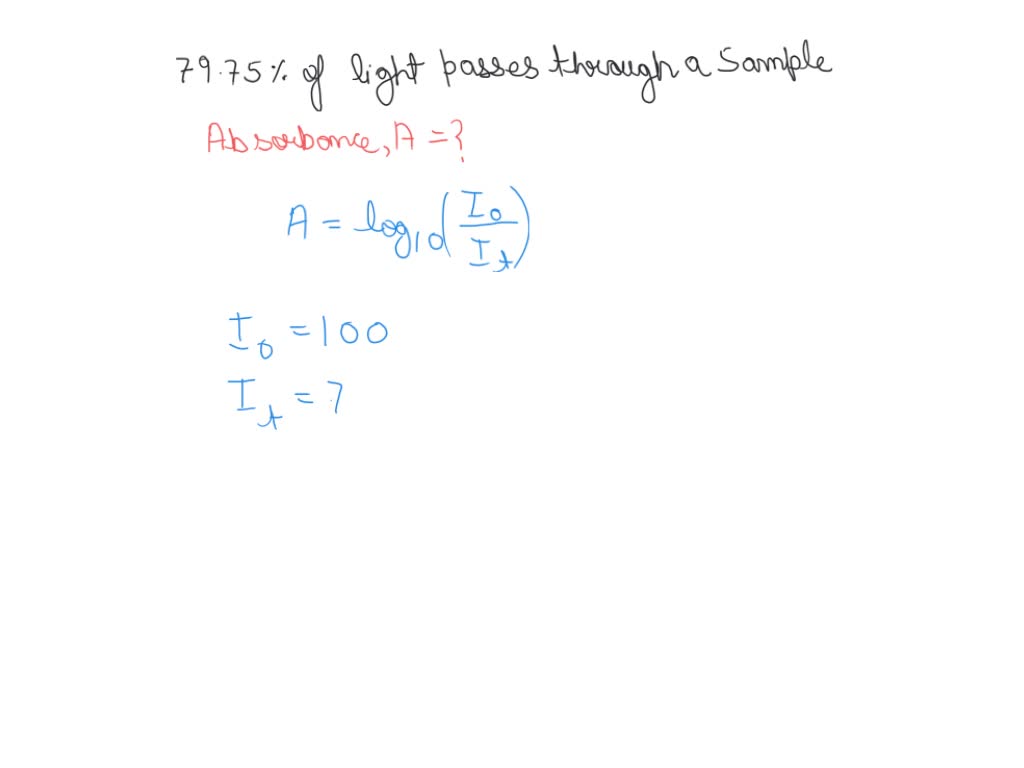 79.75% of light passes through a sample
Absorbance, A = ?
A = log₁₀(I₀/Iₜ)
I₀ = 100
Iₜ = 7